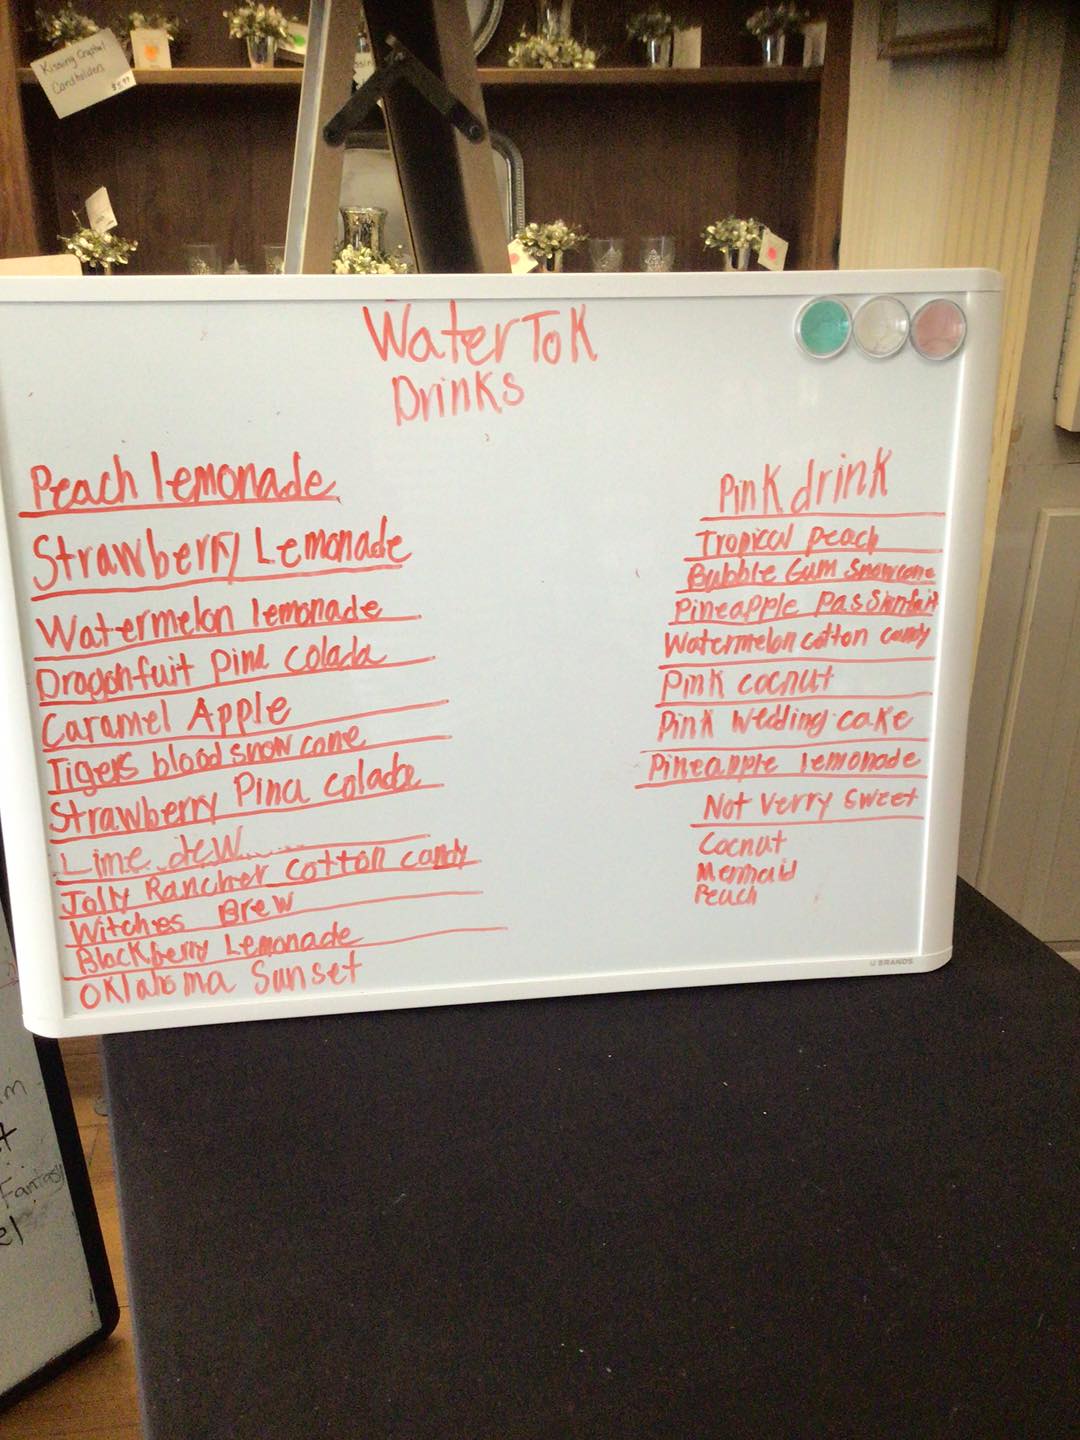 Kissing Crystal
Cardholders
$5.99
WaterTok
Drinks
Peach lemonade
Strawberry Lemonade
Watermelon lemonade
Dragonfuit pina colada
Caramel Apple
Tigers blood snow cone
Strawberry Pina colada
Lime dew
Jolly Rancher cotton candy
Witches Brew
Blackberry Lemonade
Oklahoma Sunset
Pink drink
Tropical peach
Bubble Gum snowcone
Pineapple
Watermelon cotton candy
Pink cocnut
Pink wedding cake
Pineapple lemonade
Not verry sweet
Cocnut
Mermaid
Peach
U BRANDS
Fantasy